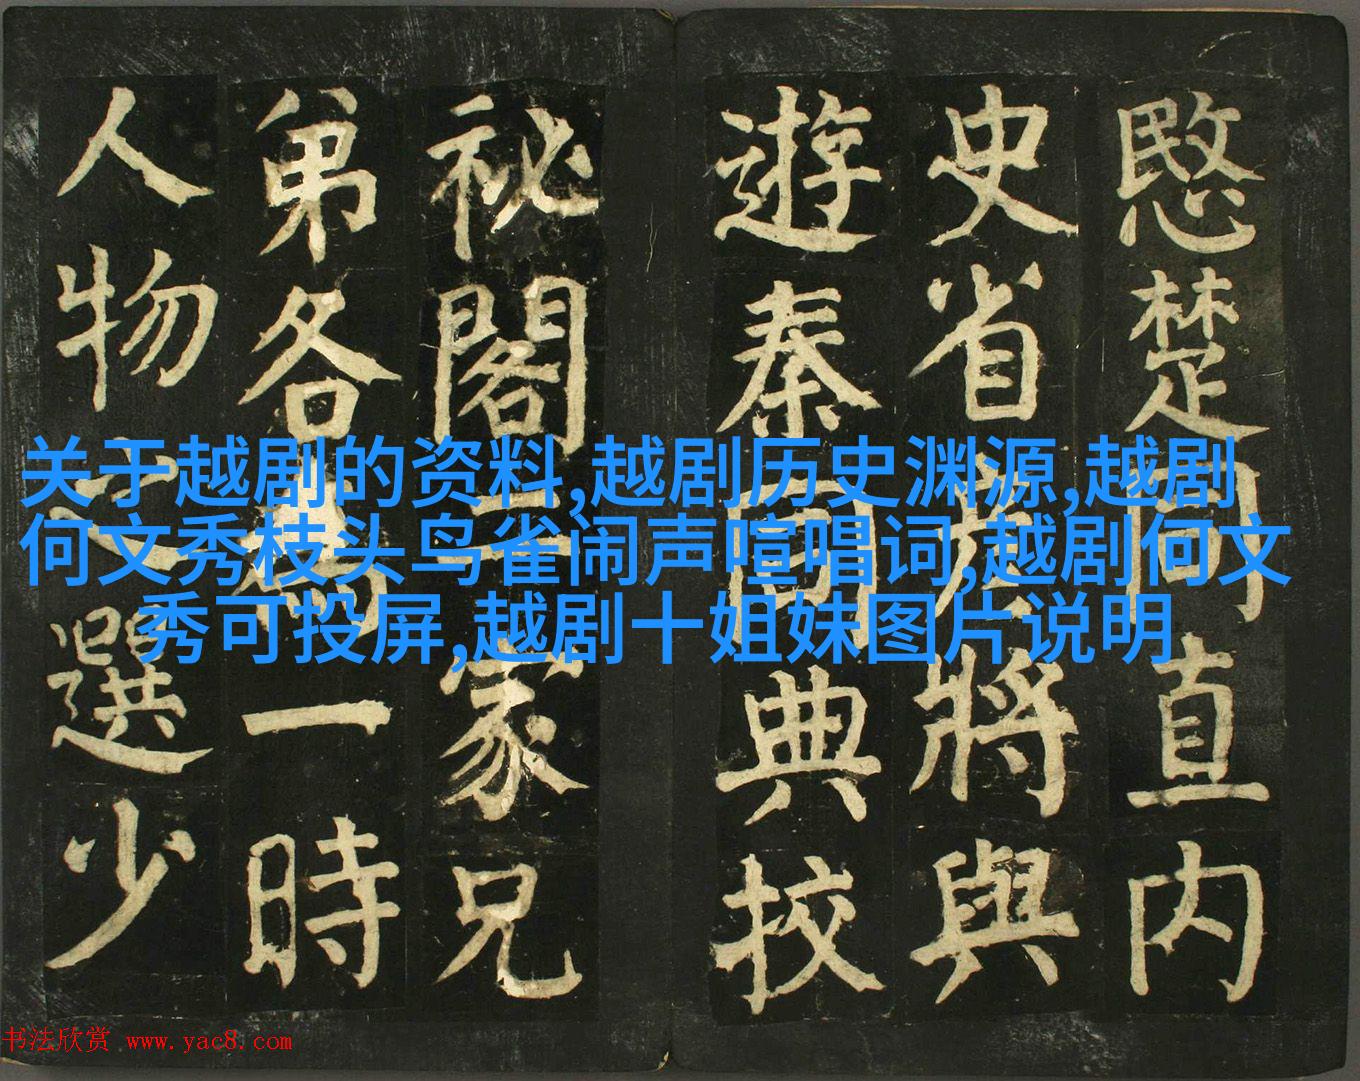 愍楚同直内
史省彥將與
遊秦同典校
祕閣二家兄
弟各為一時
人物之選少
关于越剧的资料,越剧历史渊源,越剧
何文秀枝头鸟雀闹声喧唱词,越剧何文
秀可投屏,越剧十姐妹图片说明
书法欣赏 www.yac8.com